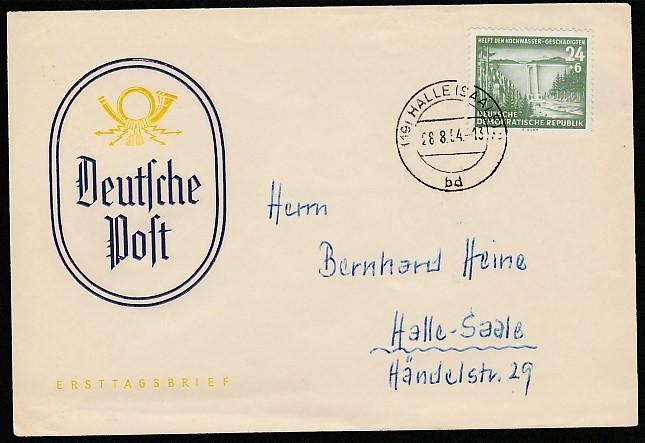 HELFT DEN HOCHWASSER-GESCHÄDIGTEN
24
+6
DEUTSCHE
DEMOKRATISCHE REPUBLIK
(19) HALLE (SAA
28.8.54.-13
bd
Deutsche
Post
Herrn
Bernhard Heine
Halle-Saale
Händelstr. 29
ERSTTAGSBRIEF